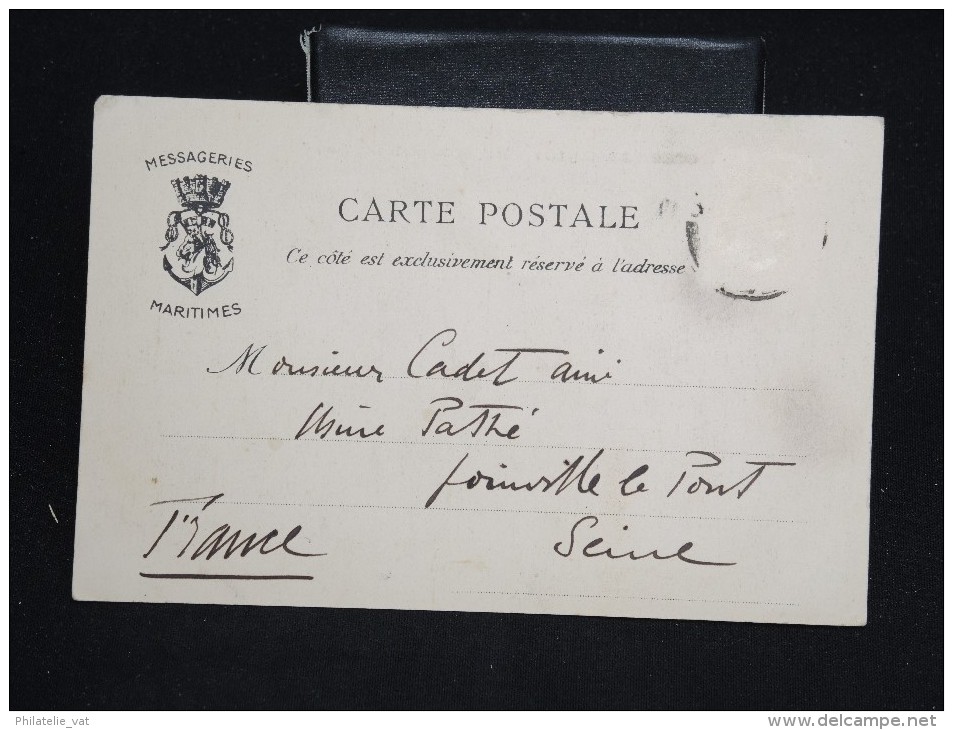 MESSAGERIES
MARITIMES
CARTE POSTALE
Ce côté est exclusivement réservé à l'adresse
Monsieur Cadet ainé
Usine Pathé
Joinville le Pont
Seine
France
Philatelie_vat
www.delcampe.net